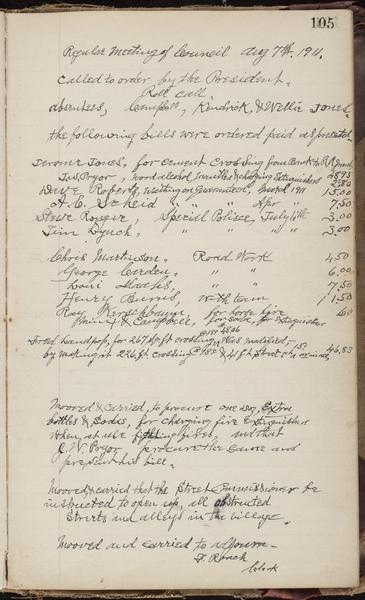 105
Regular Meeting of Council Aug 7th, 1911.
Called to order by the President.
Roll call.
absentees, Campbell, Kendrick, & Wellie Jones.
the following bills were ordered paid as presented.
Jerome Jones, for cement Crossing from Bank to R.R.
J.W. Pryor, wood alcohol, &charging Extinguishers
Dave Roberts, waiting on March 1911 5.00
A.C. Scheid " " " Apr " 7.50
Steve Rouger, Special Police, July 4th 3.00
Jim Lynch, " " " " 3.00
Chris Martinson. Road Work 4.50
George Carden. " " 6.00
" " 7.50
Henry Burris, with team 11.50
Ray Kerschbaum, for horse hire
& Campbell, for soda, for extinguisher .60
for 267 sq ft crossing was modified,
by making it 226 ft. crossing @ 18¢ & 41 ft street 46.83
Mooved & carried, to procure one doz, Extra
bottles & Sodas, for charging fire Extinguishers
when, at use fires, and that
J.W. Pryor procure the same and
present his bill.
Mooved & carried that the Street Commissioner be
instructed to open up, all obstructed
Streets and alleys in the village.
Mooved and carried to adjourn.
F. Roach
Clerk